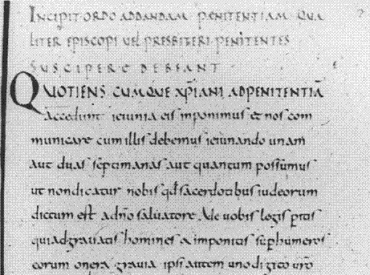 INCIPIT ORDO AD DANDAM PENITENTIAM QUA
LITER EPISCOPI UEL PRESBITERI PENITENTES
SUSCIPERE DEBEANT
QUOTIENSCUMQUE XPIANI AD PENITENTIĀ
accedunt ieiunia eis inponimus et nos com
municare cum illis debemus ieiunando unam
aut duas septimanas aut quantum possumus
ut non dicatur nobis qđ sacerdotibus iudeorum
dictum est a dño saluatore Uae uobis legis peritis
qui adgrauatis homines & inponitis sup humeros
eorum onera grauia ipsi autem uno digito uro